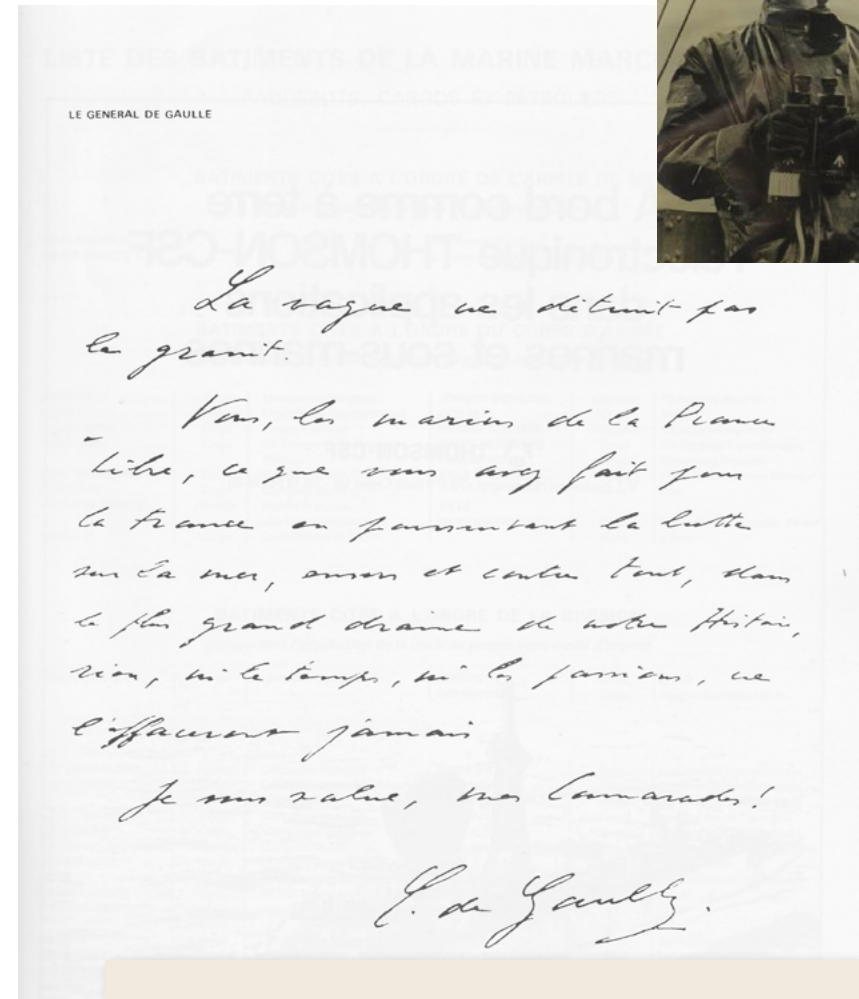 LE GENERAL DE GAULLE
La vague ne détruit pas
le granit
Vous, les marins de la France
Libre, ce que vous avez fait pour
la France en poursuivant la lutte
sur la mer, envers et contre tout, dans
le plus grand drame de notre Histoire,
rien, ni le temps, ni les passions, ne
l'effaceront jamais
Je vous salue, mes Camarades!
C. de Gaulle.